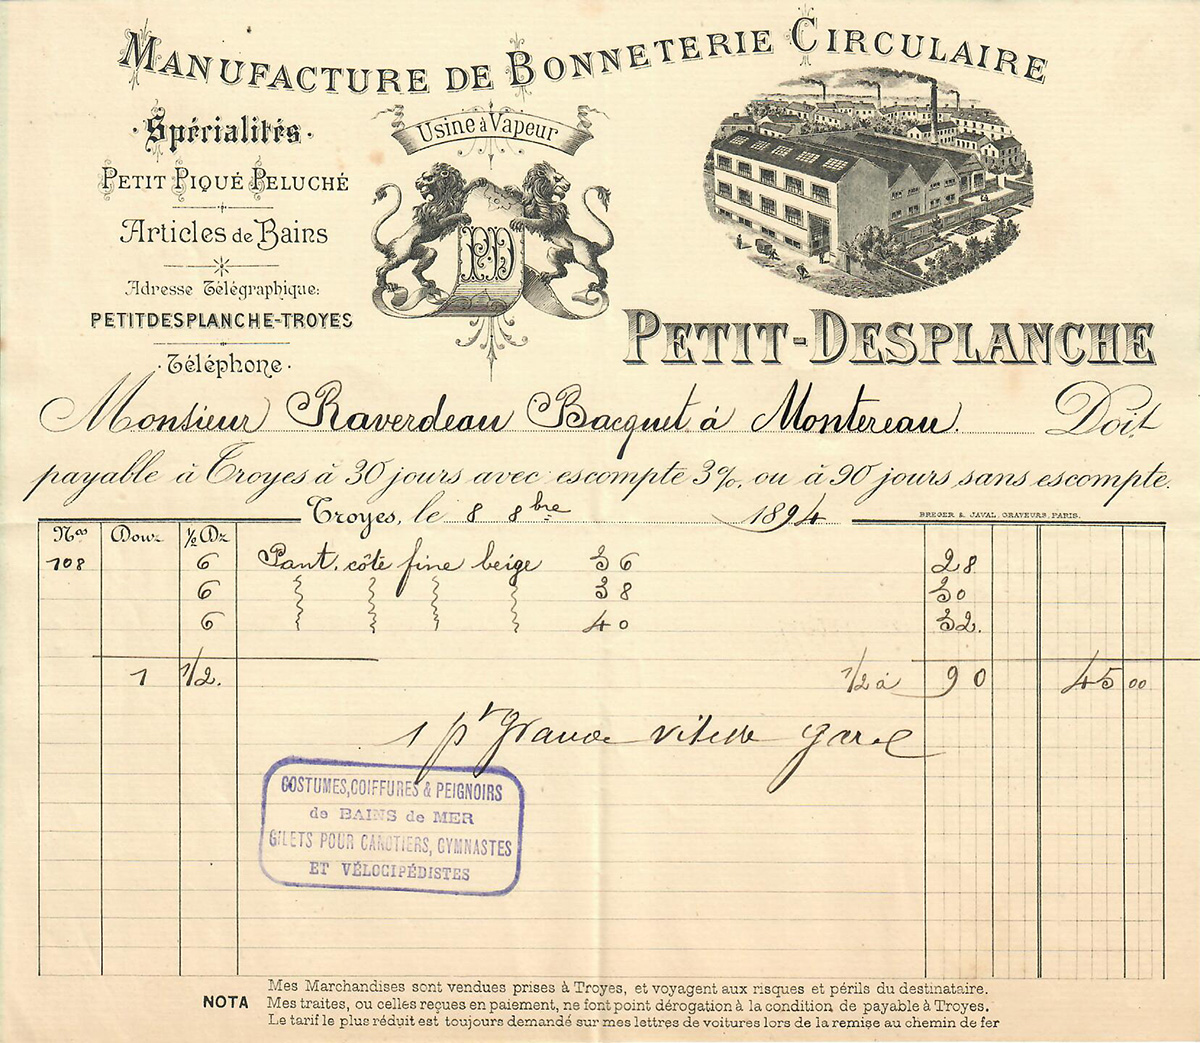 MANUFACTURE DE BONNETERIE CIRCULAIRE
· Spécialités ·
PETIT PIQUÉ PELUCHÉ
Articles de Bains
Adresse Télégraphique:
PETITDESPLANCHE-TROYES
· Téléphone ·
Usine à Vapeur
PD
PETIT-DESPLANCHE
Monsieur Raverdeau Bacquet à Montereau. Doit
payable à Troyes à 30 jours avec escompte 3%. ou à 90 jours sans escompte.
Troyes, le 8 8bre 1894
BREGER & JAVAL, GRAVEURS, PARIS.
Nos Douz ½ Dz
108 6 Pant. côte fine beige 36 28
6 38 30
6 40 32.
1 1/2. 1/2 à 90 45 00
1 pt grande vitesse gare
COSTUMES, COIFFURES & PEIGNOIRS
de BAINS de MER
GILETS POUR CANOTIERS, GYMNASTES
ET VÉLOCIPÉDISTES
NOTA
Mes Marchandises sont vendues prises à Troyes, et voyagent aux risques et périls du destinataire.
Mes traites, ou celles reçues en paiement, ne font point dérogation à la condition de payable à Troyes.
Le tarif le plus réduit est toujours demandé sur mes lettres de voitures lors de la remise au chemin de fer